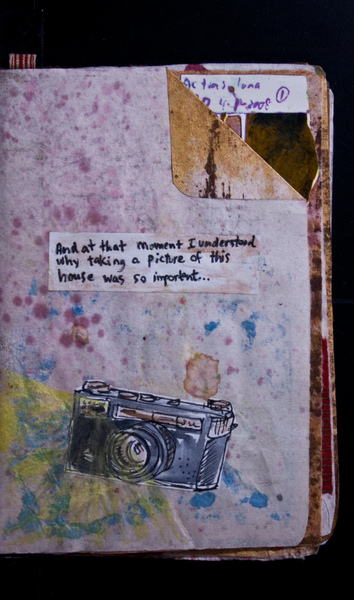 ①
And at that moment I understand
why taking a picture of this
house was so importent...